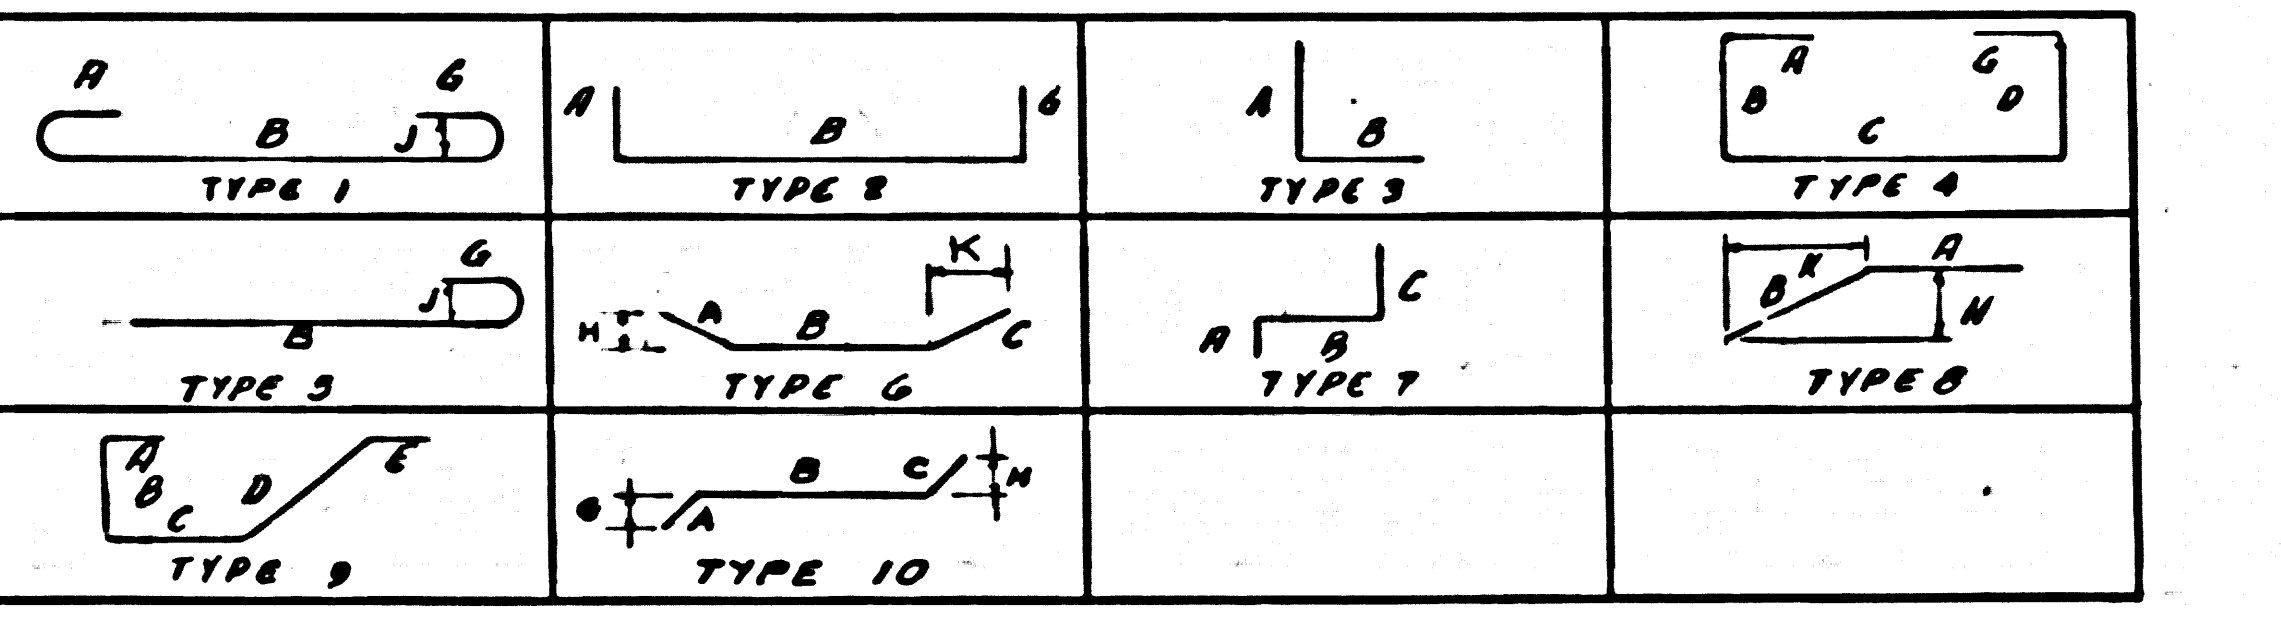 A G
B J
TYPE 1
A B G
TYPE 2
A B
TYPE 3
A G
B D
C
TYPE 4
G
J
B
TYPE 5
K
H A B C
TYPE 6
C
A B
TYPE 7
A
K
B H
TYPE 8
A E
B D
C
TYPE 9
B C H
G A
TYPE 10